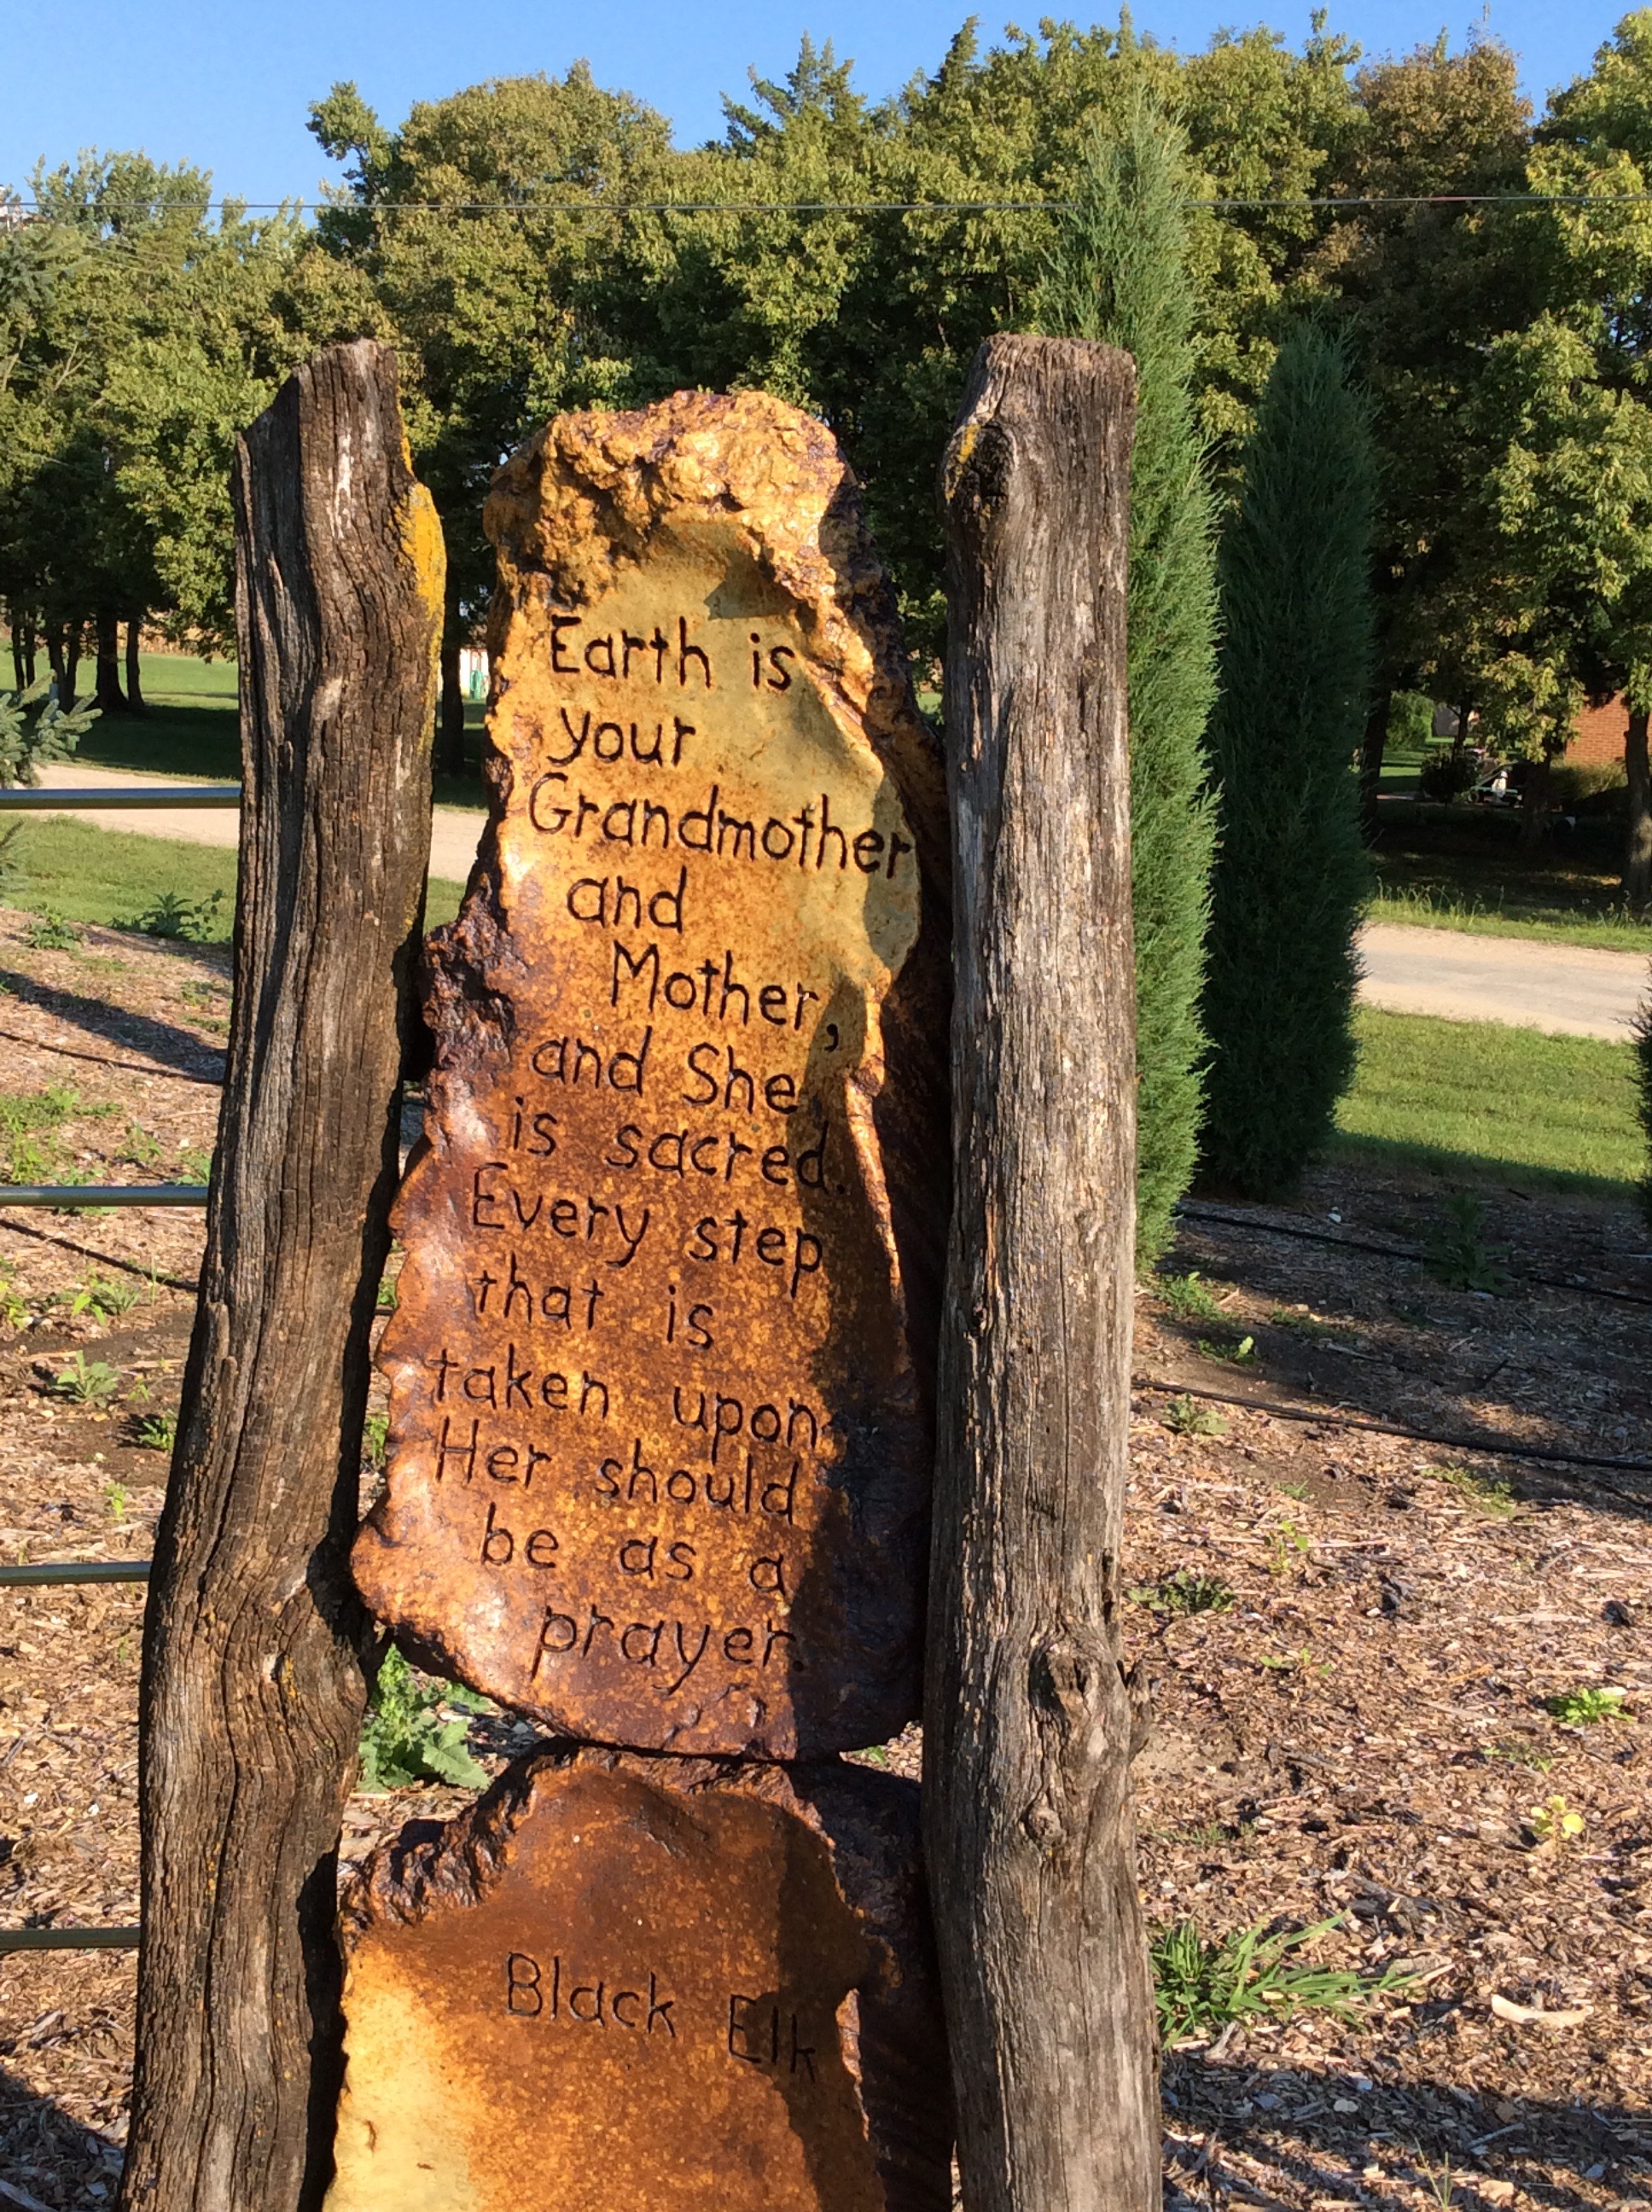 Earth is
your
Grandmother
and
Mother,
and She
is sacred.
Every step
that is
taken upon
Her should
be as a
prayer.
Black Elk